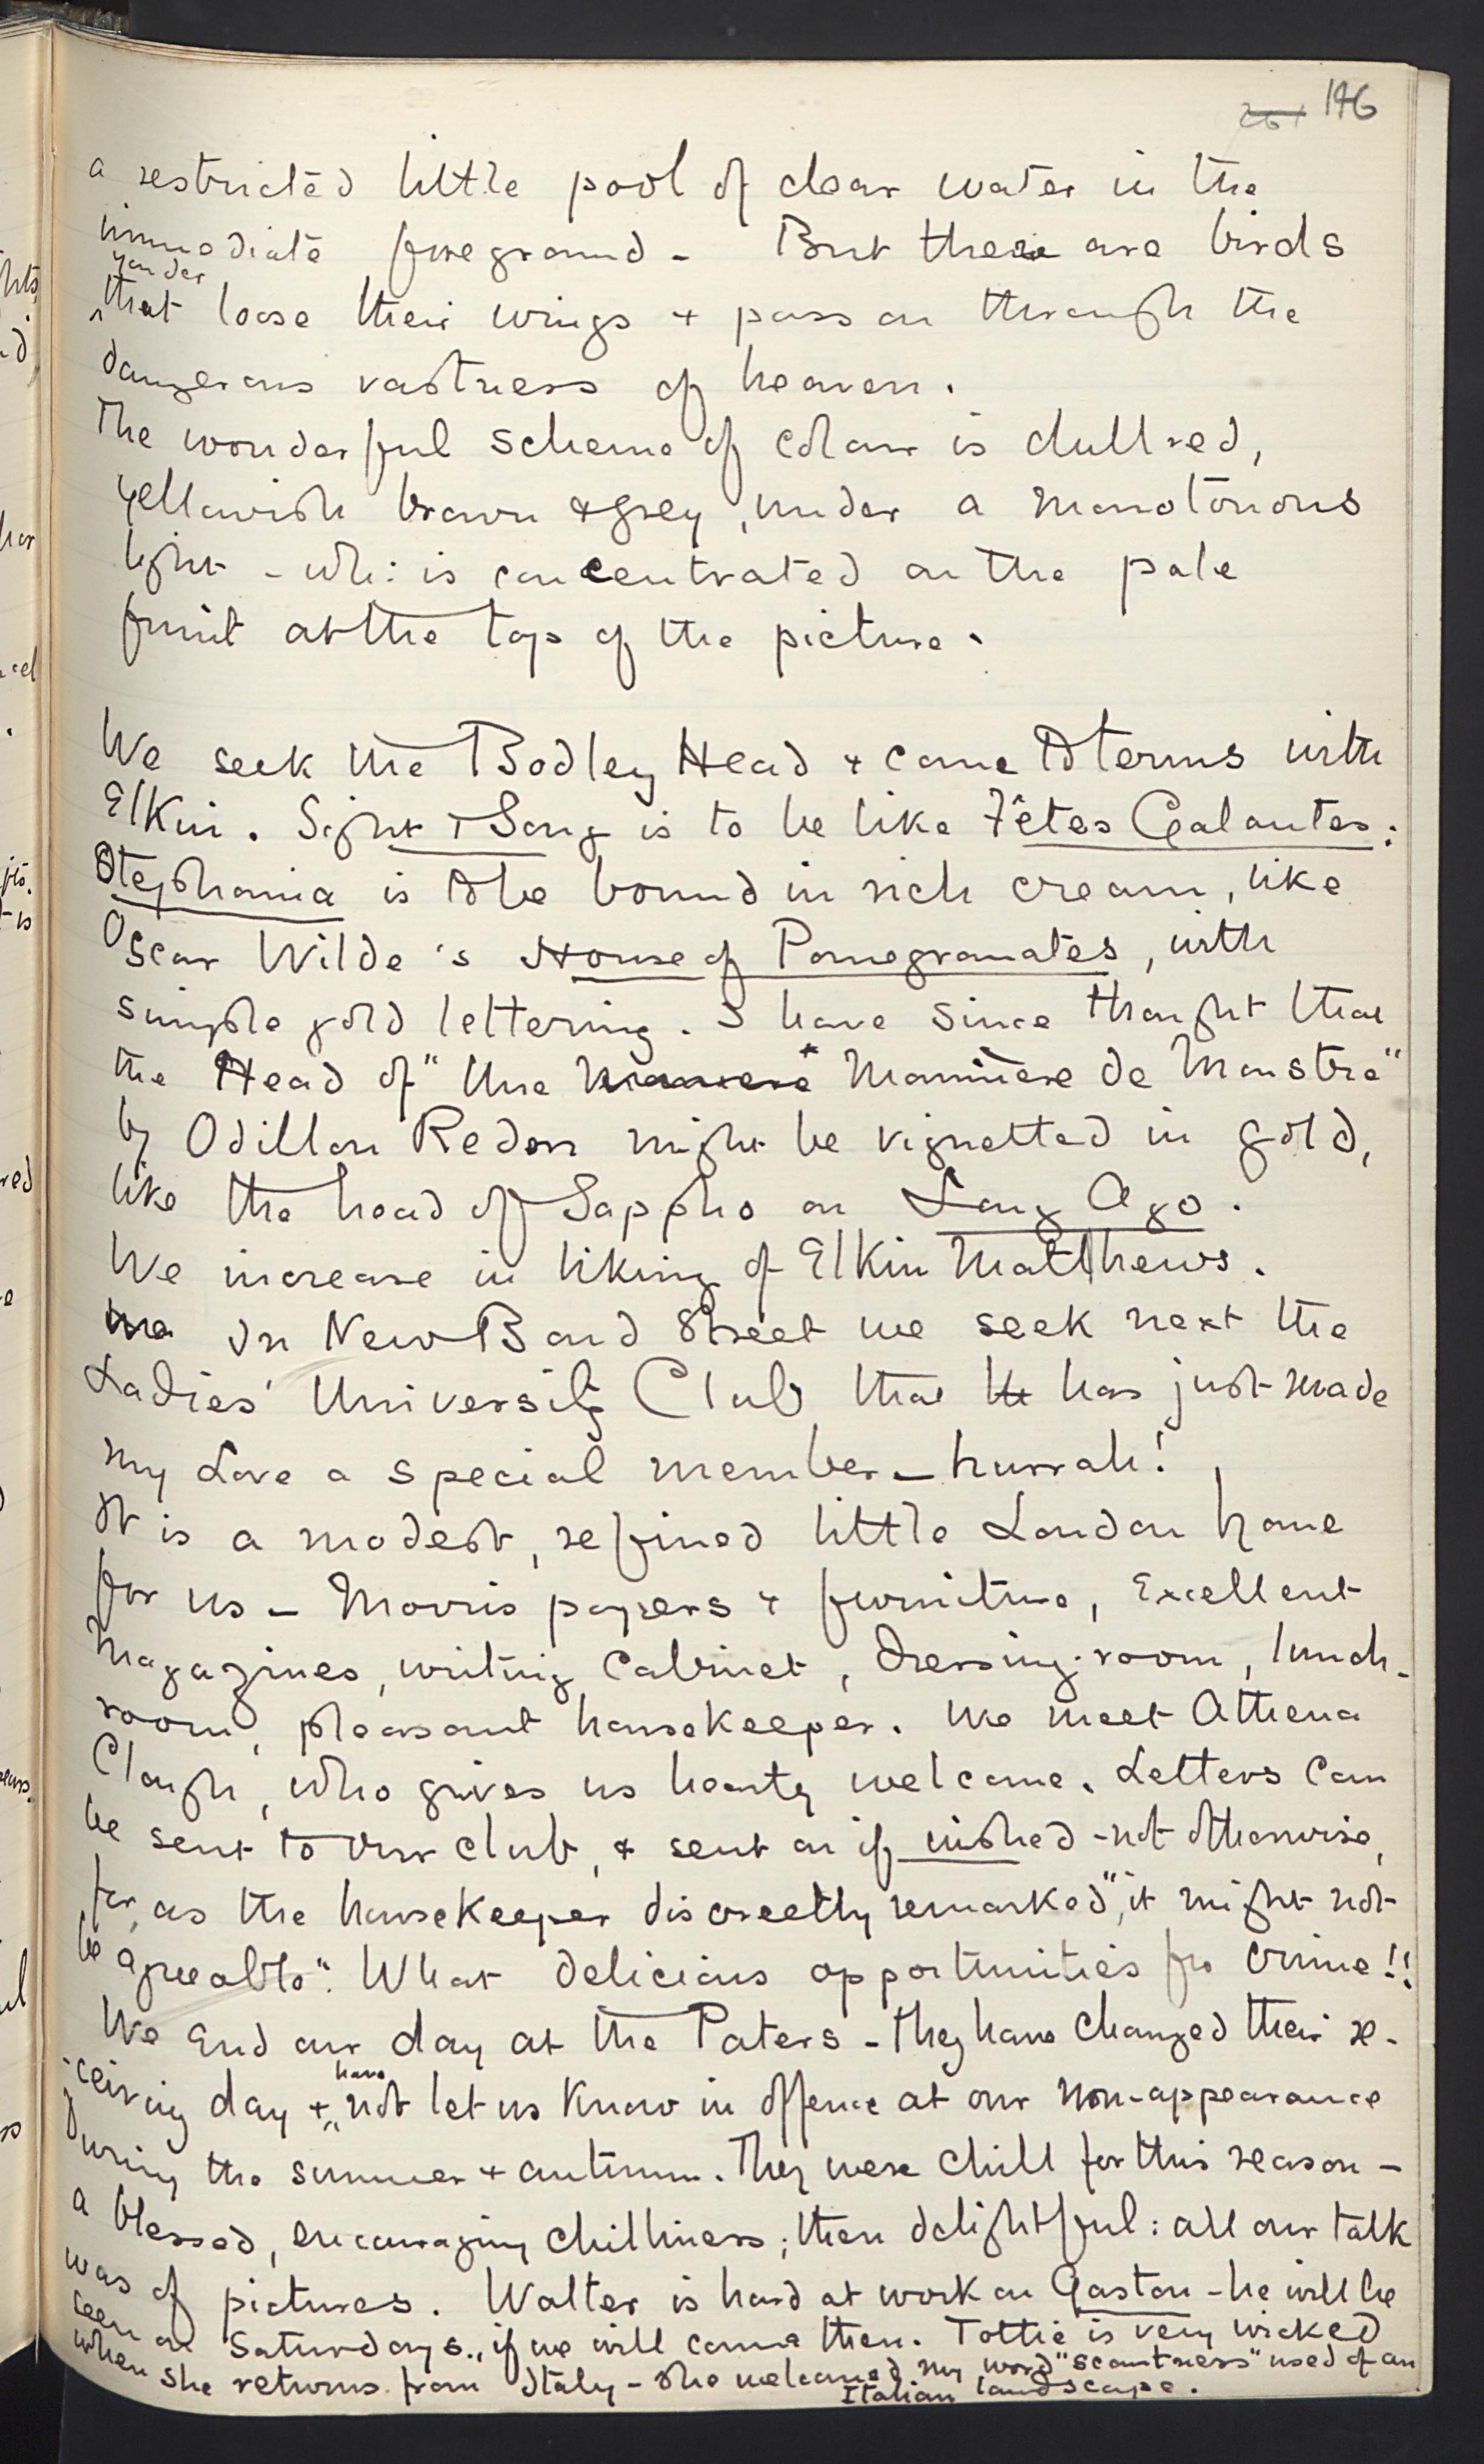 261 146
a restricted little pool of clear water in the
immediate foreground - But there are birds
yonder
^that loose their wings + pass on through the
dangerous vastness of heaven.
The wonderful scheme of colour is dull red,
yellowish brown & grey, under a monotonous
light - wh: is concentrated on the pale
fruit at the top of the picture.
We seek the Bodley Head + come to terms with
Elkin. Sight + Song is to be like Fêtes Galantes:
Stephania is to be bound in rich cream, like
Oscar Wilde's House of Pomegranates, with
simple gold lettering. I have since thought that
the Head of "Une Maniere Mannière de Monstre"
by Odillon Redon might be vignetted in gold,
like the head of Sappho on Long Ago.
We increase in liking of Elkin Matthews.
We In New Bond Street we seek next the
Ladies' University Club that it has just made
my Love a special member - hurrah!
It is a modest, refined little London home
for us - Morris papers + furniture, Excellent
Magazines, writing Cabinet, dressing-room, lunch-
room, pleasant housekeeper. We meet Athena
Clough, who gives us hearty welcome. Letters can
be sent to our club, + sent on if wished - not otherwise,
for, as the housekeeper discreetly remarked, "it might not
be agreeable". What delicious opportunities for crime!!
We End our day at the Paters - they have changed their re-
ceiving day + have not let us know in offence at our non-appearance
during the summer + autumn. They were chill for this reason -
a blessed, encouraging chilliness; then delightful: all our talk
was of pictures. Walter is hard at work on Gaston - he will be
seen on Saturdays., if we will come then. Tottie is very wicked
when she returns from Italy - she welcomed my word "scantness" used of an
Italian landscape.